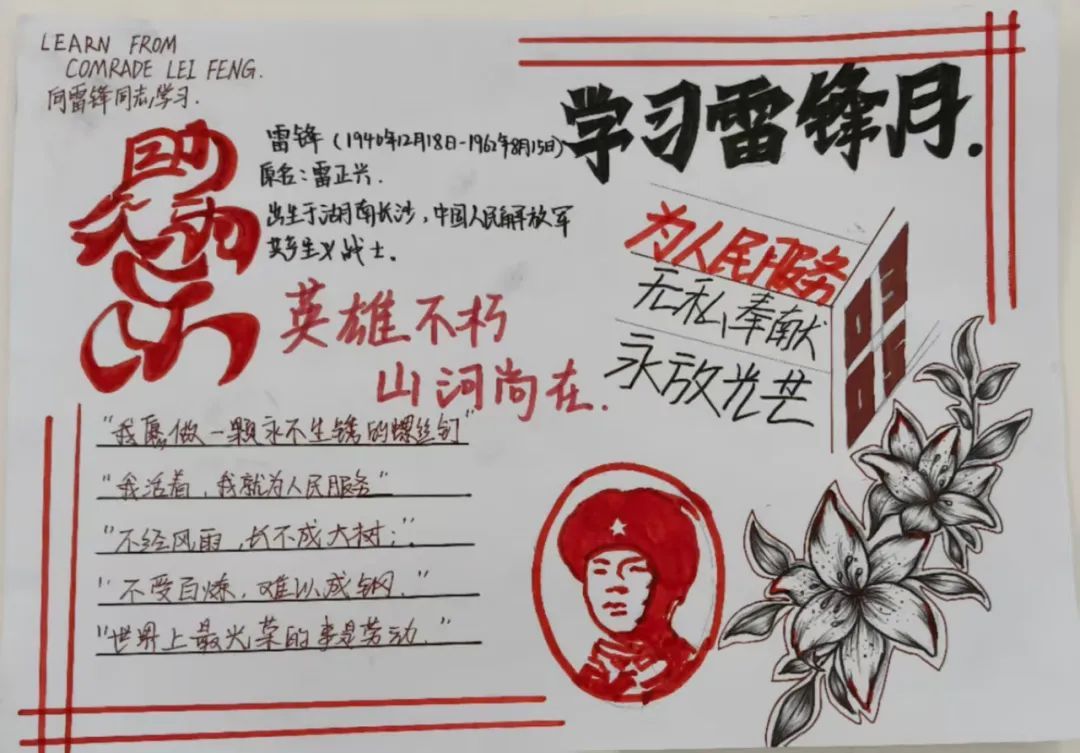 LEARN FROM
COMRADE LEI FENG.
向雷锋同志学习.
学习雷锋月.
助人为乐
雷锋（1940年12月18日-1962年8月15日）
原名：雷正兴.
出生于湖南长沙，中国人民解放军
共产主义战士.
为人民服务
无私奉献
永放光芒
英雄不朽
山河尚在.
"我愿做一颗永不生锈的螺丝钉"
"我活着，我就为人民服务"
"不经风雨，长不成大树；"
"不受百炼，难以成钢."
"世界上最光荣的事是劳动."